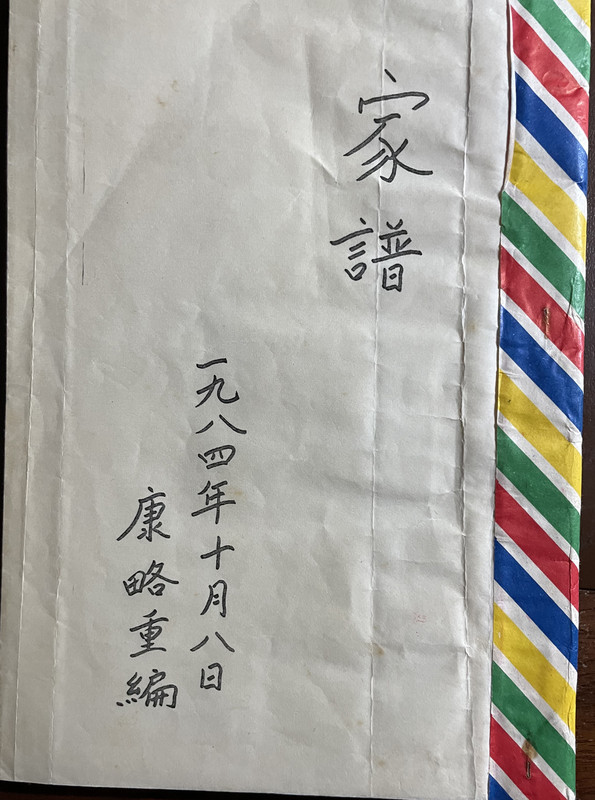 家譜
一九八四年十月八日
康略重編